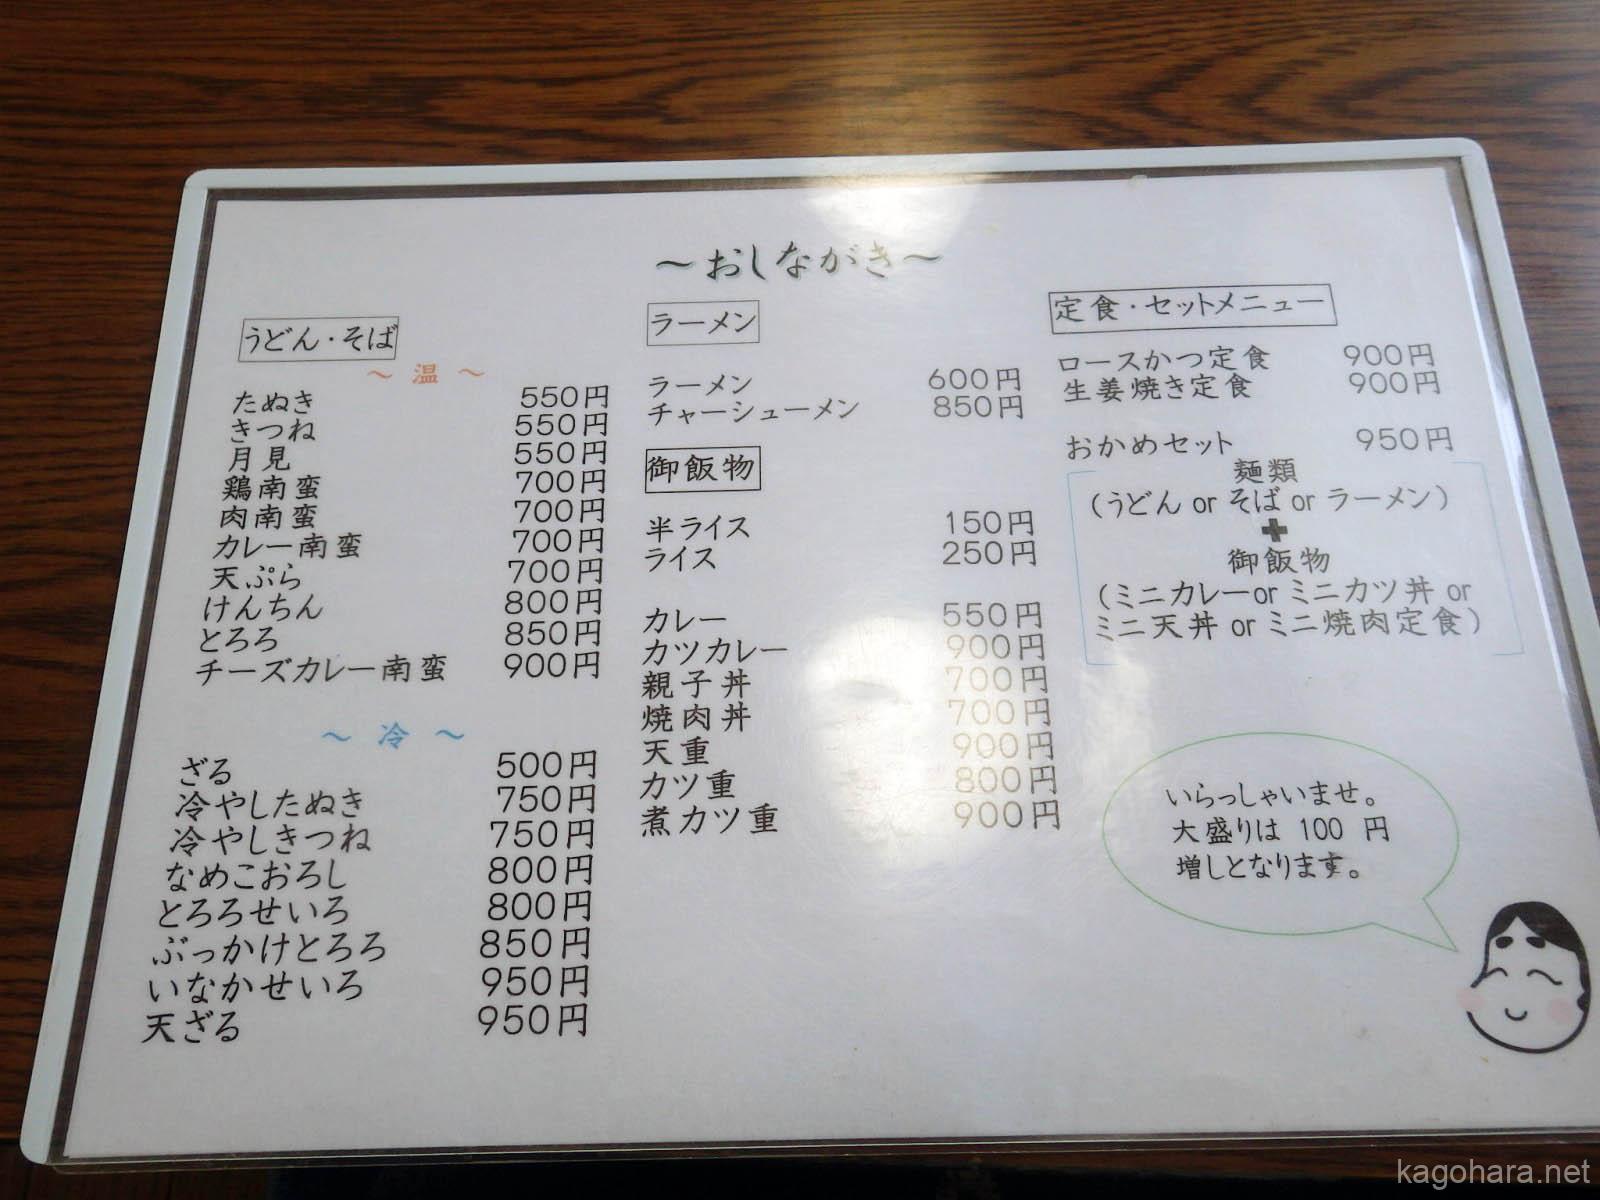 ～おしながき～
うどん・そば
～ 温 ～
たぬき 550円
きつね 550円
月見 550円
鶏南蛮 700円
肉南蛮 700円
カレー南蛮 700円
天ぷら 700円
けんちん 800円
とろろ 850円
チーズカレー南蛮 900円
～ 冷 ～
ざる 500円
冷やしたぬき 750円
冷やしきつね 750円
なめこおろし 800円
とろろせいろ 800円
ぶっかけとろろ 850円
いなかせいろ 950円
天ざる 950円
ラーメン
ラーメン 600円
チャーシューメン 850円
御飯物
半ライス 150円
ライス 250円
カレー 550円
カツカレー 900円
親子丼 700円
焼肉丼 700円
天重 900円
カツ重 800円
煮カツ重 900円
定食・セットメニュー
ロースかつ定食 900円
生姜焼き定食 900円
おかめセット 950円
麺類
（うどん or そば or ラーメン）
✚
御飯物
（ミニカレー or ミニカツ丼 or
ミニ天丼 or ミニ焼肉定食）
いらっしゃいませ。
大盛りは 100 円
増しとなります。
kagohara.net